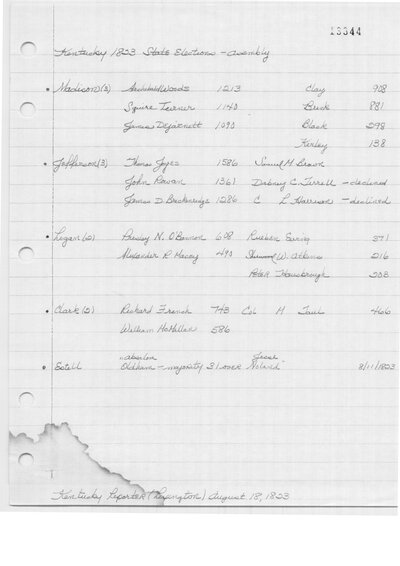 13344
Kentucky 1823 State Elections - Assembly
• Madison (3) Archibald Woods 1213 Clay 908
Squire Turner 1140 Burk 881
James Dejarnett 1090 Black 298
Kerley 138
• Jefferson (3) Thomas Joyes 1586 Samuel M. Brown
John Rowan 1361 Dabney C. Terrell - declined
James D. Breckenridge 1286 C L Harrison - declined
• Logan (2) Presley N. O'Bannon 608 Rueben Ewing 371
Alexander R. Macey 490 W. Atkins 216
Peter Hansbrough 203
• Clark (2) Richard French 743 Col H Taul 466
William McMillan 586
• Estill Absalom Oldham - majority 31 over Jesse Noland 8/11/1823
Kentucky Reporter (Lexington) August 18, 1823